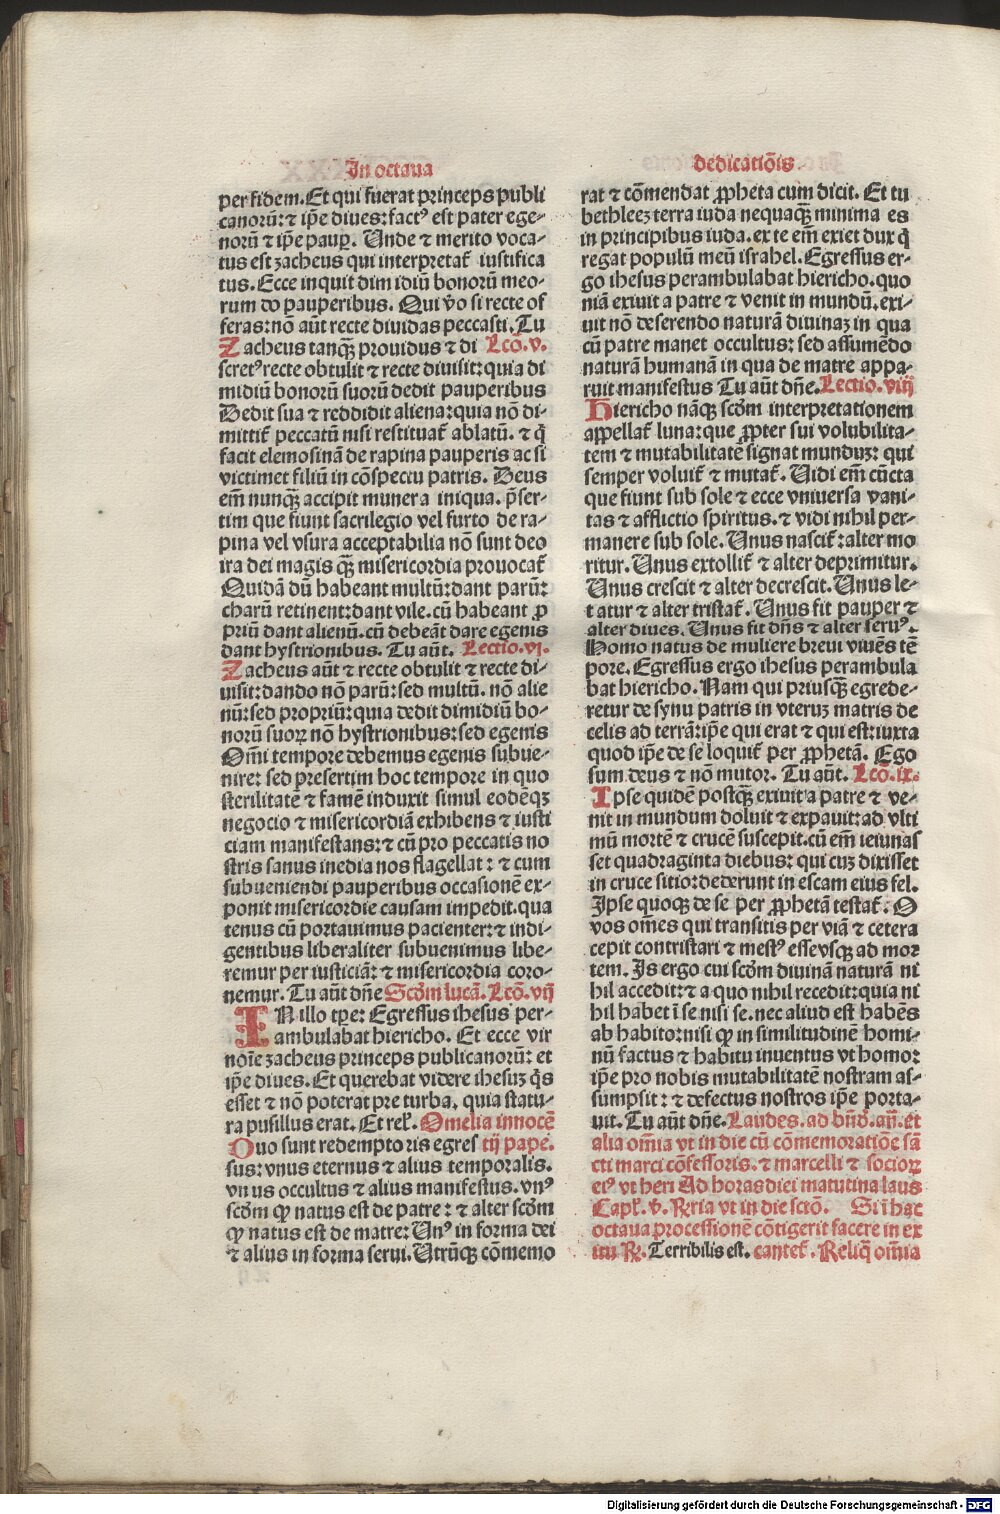 In octaua
per fidem. Et qui fuerat princeps publi
canorū: ⁊ ip̄e diues: factꝰ est pater ege-
norū ⁊ ip̄e paup̲. Unde ⁊ merito voca-
tus est zacheus qui interpretat᷑ iustifica
tus. Ecce inquit dimidiū bonorū meo-
rum do pauperibus. Qui v̄o si recte of
feras: nō aūt recte diuidas peccasti. Tu
Zacheus tanqꝫ prouidus ⁊ di Lcō. v.
scretꝰ recte obtulit ⁊ recte diuisit: quia di
midiū bonorū suorū dedit pauperibus
Dedit sua ⁊ reddidit aliena: quia nō di-
mittit᷑ peccatū nisi restituat᷑ ablatū. ⁊ q̄
facit elemosinā de rapina pauperis ac si
victimet filiū in cōspectu patris. Deus
em̄ nunqꝫ accipit munera iniqua. p̄ser-
tim que fiunt sacrilegio vel furto de ra-
pina vel vsura acceptabilia nō sunt deo
ira dei magis qꝫ misericordia prouocat᷑
Quidā dū habeant multū: dant parū:
charū retinent: dant vile. cū habeant ꝓ
priū dant alienū. cū debeāt dare egenis
dant hystrionibus. Tu aūt. Lectio. vi.
Zacheus aūt ⁊ recte obtulit ⁊ recte di-
uisit: dando nō parū: sed multū. nō alie
nū: sed propriū: quia dedit dimidiū bo-
norū suoꝝ nō hystrionibus: sed egenis
Om̄i tempore debemus egenis subue-
nire: sed presertim hoc tempore in quo
sterilitatē ⁊ famē induxit simul eodēqꝫ
negocio ⁊ misericordiā exhibens ⁊ iusti
ciam manifestans: ⁊ cū pro peccatis no
stris sanus inedia nos flagellat: ⁊ cum
subueniendi pauperibus occasionē ex-
ponit misericordie causam impedit. qua
tenus cū portauimus pacienter: ⁊ indi-
gentibus liberaliter subuenimus libe-
remur per iusticiā: ⁊ misericordia coro-
nemur. Tu aūt dn̄e Scd̄m lucā. Lcō. vij
IN illo tp̄e: Egressus ihesus per-
ambulabat hiericho. Et ecce vir
noīe zacheus princeps publicanorū: et
ip̄e diues. Et querebat videre ihesuꝫ q̄s
esset ⁊ nō poterat pre turba. quia statu-
ra pusillus erat. Et rel̕. Omelia innocē
Duo sunt redemptoris egres tij pape.
sus: vnus eternus ⁊ alius temporalis.
vnus occultus ⁊ alius manifestus. vnꝰ
scd̄m ꝙ natus est de patre: ⁊ alter scd̄m
ꝙ natus est de matre: Unꝰ in forma dei
⁊ alius in forma serui. Utrūqꝫ cōmemo
dedicatiōis.
rat ⁊ cōmendat ꝓpheta cum dicit. Et tu
bethleeꝫ terra iuda nequaqꝫ minima es
in principibus iuda. ex te em̄ exiet dux q̄
regat populū meū israhel. Egressus er-
go ihesus perambulabat hiericho. quo
niā exiuit a patre ⁊ venit in mundū. exi-
uit nō deserendo naturā diuinaꝫ in qua
cū patre manet occultus: sed assumēdo
naturā humanā in qua de matre appa-
ruit manifestus Tu aūt dn̄e. Lectio. viij
Hiericho nāqꝫ scd̄m interpretationem
appellat᷑ luna: que ꝓpter sui volubilita-
tem ⁊ mutabilitatē signat munduꝫ: qui
semper voluit᷑ ⁊ mutat᷑. Uidi em̄ cūcta
que fiunt sub sole ⁊ ecce vniuersa vani-
tas ⁊ afflictio spiritus. ⁊ vidi nihil per-
manere sub sole. Unus nascit᷑: alter mo
ritur. Unus extollit᷑ ⁊ alter deprimitur.
Unus crescit ⁊ alter decrescit. Unus le-
tatur ⁊ alter tristat᷑. Unus fit pauper ⁊
alter diues. Unus fit dn̄s ⁊ alter seruꝰ.
Homo natus de muliere breui viuēs tē
pore. Egressus ergo ihesus perambula
bat hiericho. Nam qui priusqꝫ egrede-
retur de synu patris in vteruꝫ matris de
celis ad terrā: ip̄e qui erat ⁊ qui est: iuxta
quod ip̄e de se loquit᷑ per ꝓphetā. Ego
sum deus ⁊ nō mutor. Tu aūt. Lcō. ix.
Ipse quidē postqꝫ exiuit a patre ⁊ ve-
nit in mundum doluit ⁊ expauit: ad vlti
mū mortē ⁊ crucē suscepit. cū em̄ ieiunas
set quadraginta diebus: qui cuꝫ dixisset
in cruce sitio: dederunt in escam eius fel.
Ipse quoqꝫ de se per ꝓphetā testat᷑. O
vos om̄es qui transitis per viā ⁊ cetera
cepit contristari ⁊ mestꝰ esse vsqꝫ ad mor
tem. Is ergo cui scd̄m diuinā naturā ni
hil accedit: ⁊ a quo nihil recedit: quia ni
hil habet ī se nisi se. nec aliud est habēs
ab habito: nisi ꝙ in similitudinē homi-
nū factus ⁊ habitu inuentus vt homo:
ip̄e pro nobis mutabilitatē nostram as-
sumpsit: ⁊ defectus nostros ip̄e porta-
uit. Tu aūt dn̄e. Laudes. ad bn̄d. an̄. et
alia om̄ia vt in die cū cōmemoratiōe sā
cti marci cōfessoris. ⁊ marcelli ⁊ socioꝝ
eiꝰ vt heri Ad horas diei matutina laus
Capl̕. v. Rria vt in die scrō. Si ī hac
octaua processionē cōtigerit facere in ex
itu R̷. Terribilis est. cantet᷑. Reliq̄ om̄ia
Digitalisierung gefördert durch die Deutsche Forschungsgemeinschaft - DFG